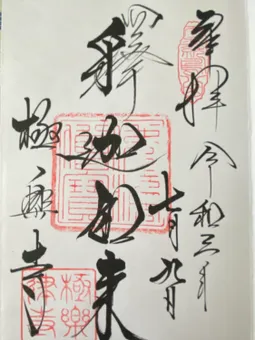 奉拝
令和三年
七月九日
釋迦如来
極楽寺